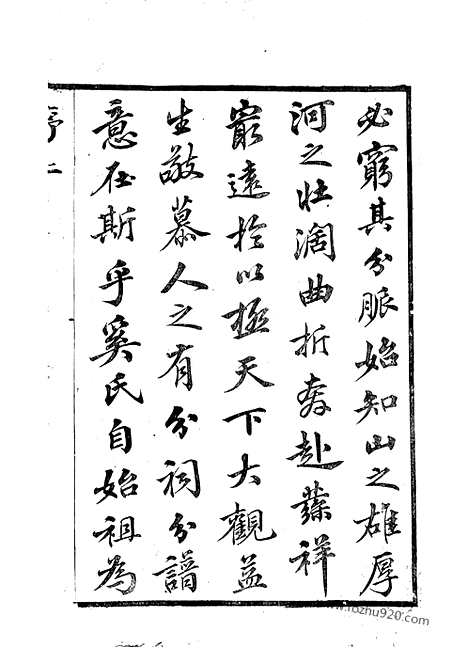 必窮其分脈始知山之雄厚
河之壯濶曲折奔赴發祥
窮遠於以極天下大觀益
生敬慕人之有分祠分譜
意在斯乎奚氏自始祖為
序二
www.fozhu920.com